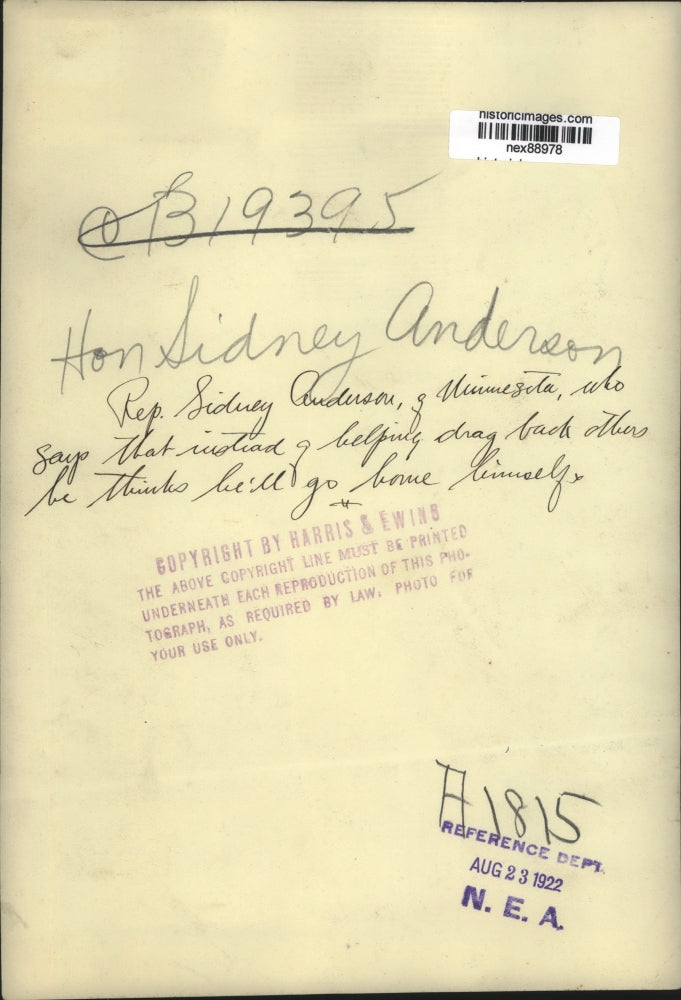 historicimages.com
nex88978
B19395
Hon Sidney Anderson
Rep. Sidney Anderson, of Minnesota, who
says that instead of helping drag back others
he thinks he'll go home himself.
COPYRIGHT BY HARRIS & EWING
THE ABOVE COPYRIGHT LINE MUST BE PRINTED
UNDERNEATH EACH REPRODUCTION OF THIS PHO-
TOGRAPH, AS REQUIRED BY LAW. PHOTO FOR
YOUR USE ONLY.
A1815
REFERENCE DEPT.
AUG 23 1922
N. E. A.